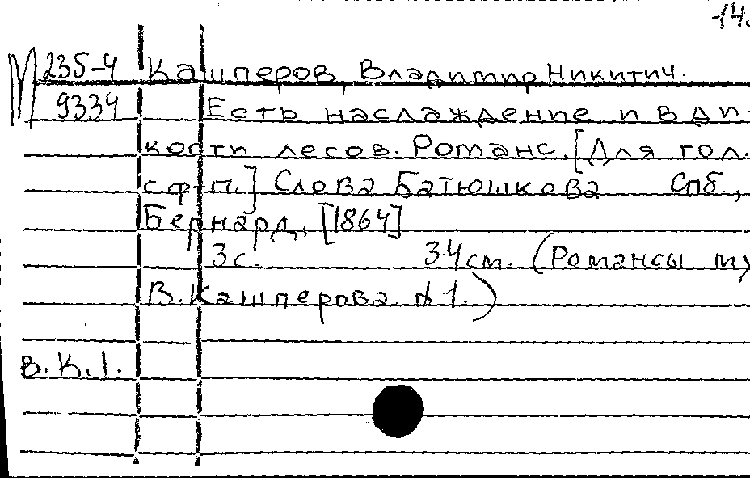 -14.
М 235-4 Кашперов, Владимир Никитич.
9334 Есть наслаждение и в ди-
кости лесов. Романс. [Для гол.
с ф-п.] Слова Батюшкова Спб.,
Бернард, [1864]
3 с. 34 см. (Романсы
В. Кашперова № 1.)
в.к.1.